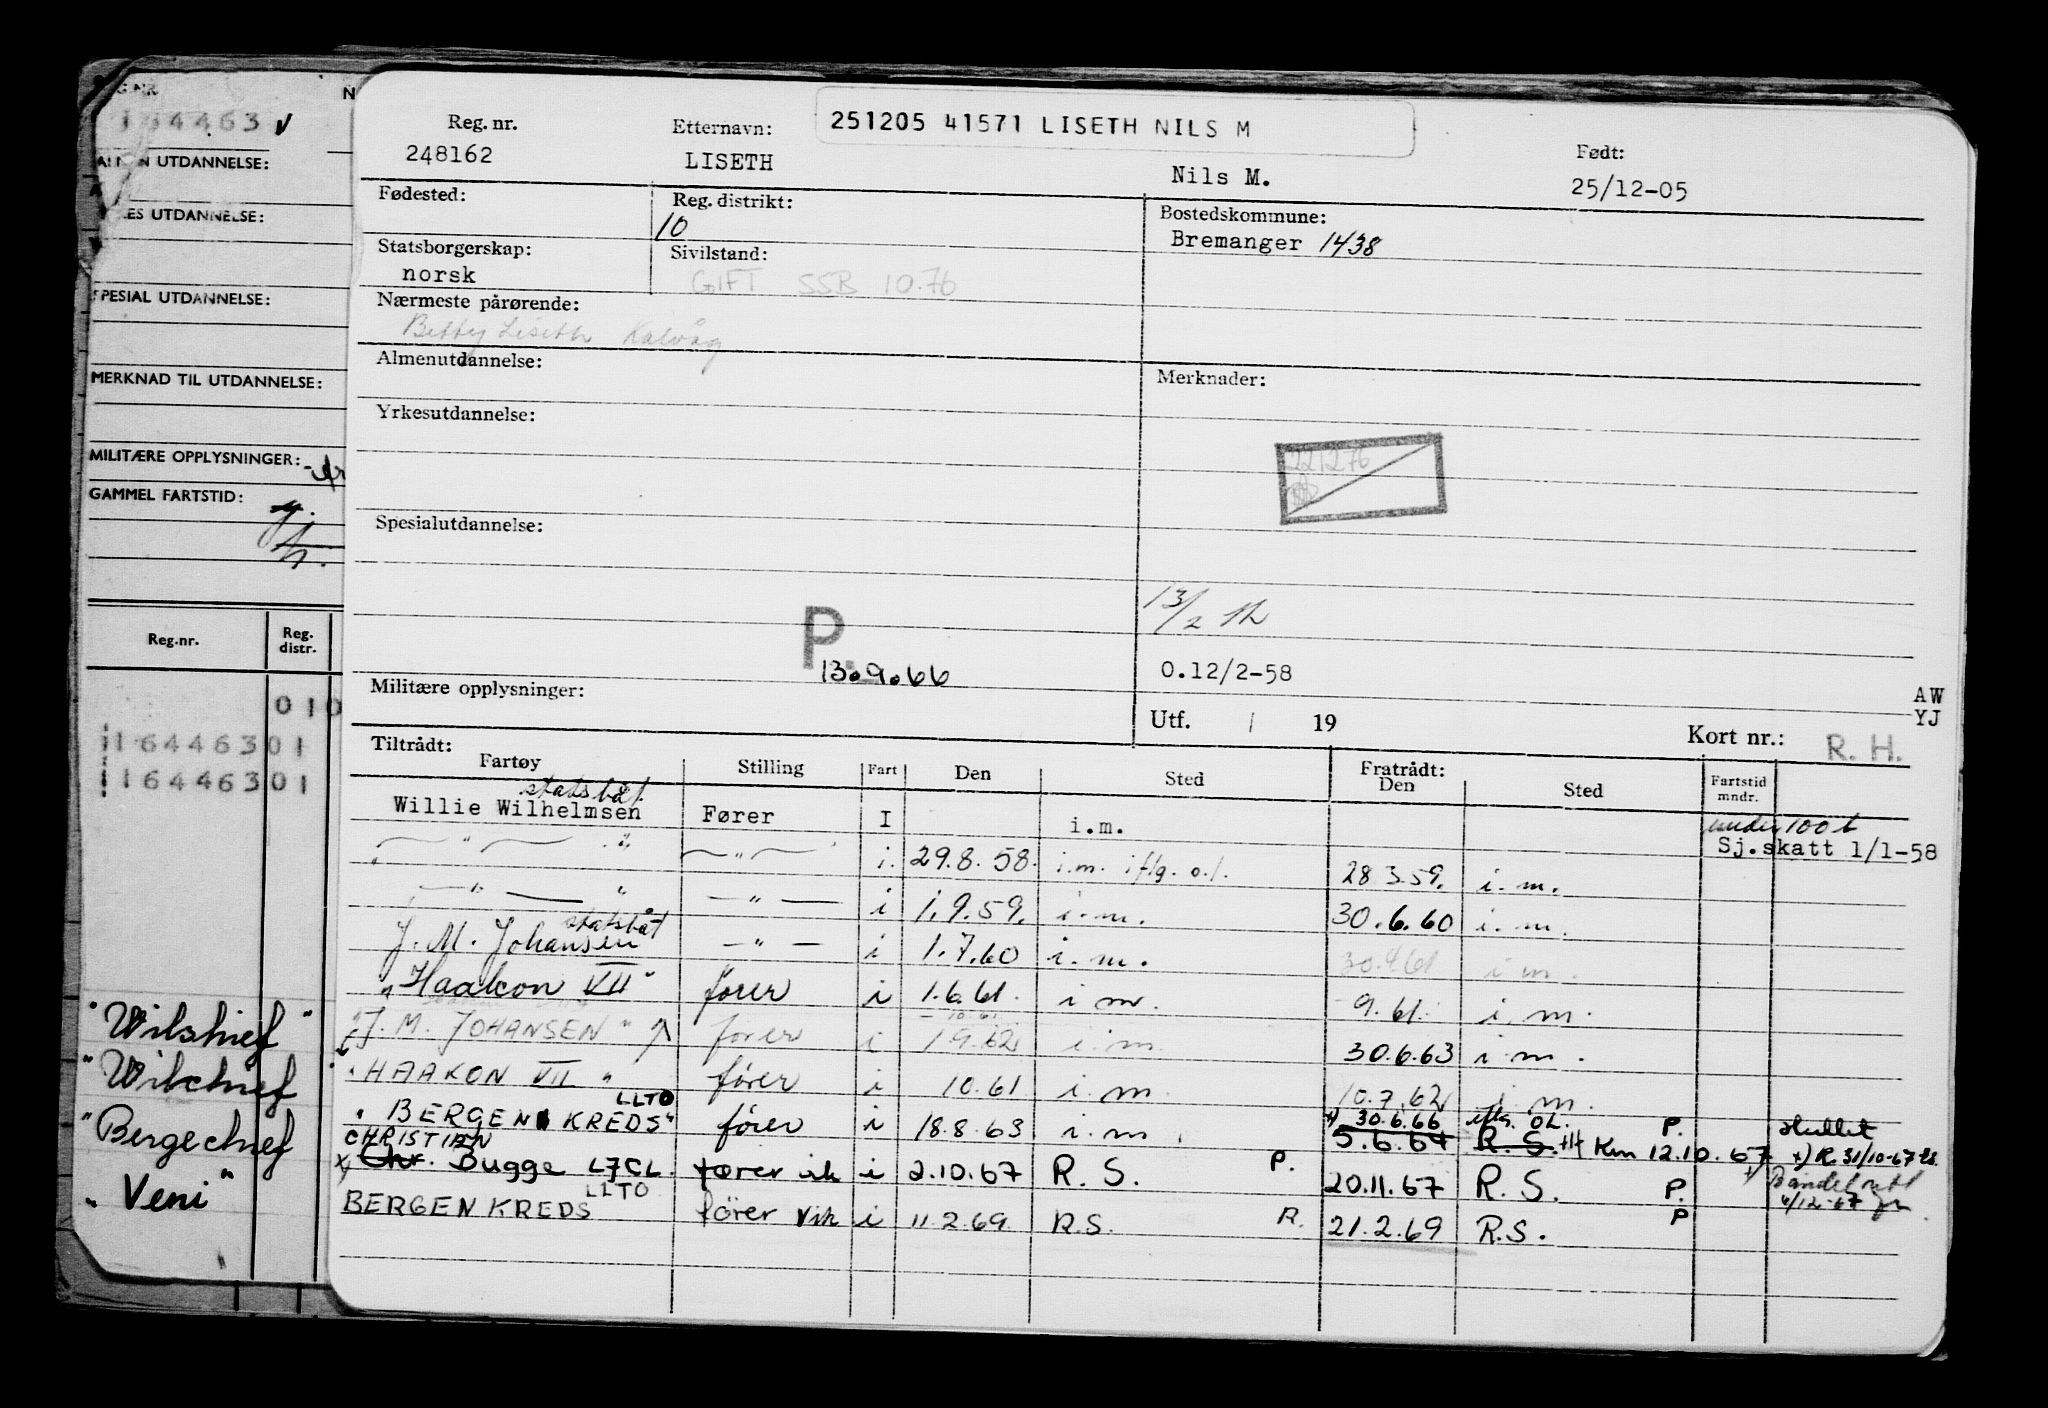 164463
UTDANNELSE:
UTDANNELSE:
SPESIAL UTDANNELSE:
MERKNAD TIL UTDANNELSE:
MILITÆRE OPPLYSNINGER:
GAMMEL FARTSTID:
Reg.nr. Reg. distr.
010
16446301
16446301
"Wilschief"
"Wilchief
"Bergechief
"Veni"
251205 41571 LISETH NILS M
Reg. nr. Etternavn: Født:
248162 LISETH Nils M. 25/12-05
Fødested: Reg. distrikt: Bostedskommune:
10 Bremanger 1438
Statsborgerskap: Sivilstand:
norsk GIFT SSB 10.76
Nærmeste pårørende:
Betty Liseth Kalvåg
Almenutdannelse: Merknader:
Yrkesutdannelse:
221276
Spesialutdannelse:
13/2
P.
13.9.66 0.12/2-58
Militære opplysninger: AW
Utf. / 19 YJ
Kort nr.: R. H.
Tiltrådt: Fratrådt:
Fartøy Stilling Fart Den Sted Den Sted Fartstid mndr.
statsbåt
Willie Wilhelmsen Fører I i.m. under 100 t
Sj.skatt 1/1-58
" " i. 29.8.58. i.m. iflg. o.l. 28.3.59. i.m.
" " i 1.9.59. i.m. 30.6.60 i.m.
statsbåt
J. M. Johansen " i 1.7.60 i.m. 30.4.61 i m.
"Haakon VII" fører i 1.6.61. i m. 9.61. i.m.
10.61
"J. M. JOHANSEN" fører i 1.9.62 i.m. 30.6.63 i m.
"HAAKON VII" fører i 10.61 i.m. 10.7.62 i.m.
LLTO
"BERGEN KREDS" fører i 18.8.63 i.m. 30.6.66 OL. P.
5.6.64 R.S. 12.10.67 R. 31/10-67
CHRISTIAN
Chr. Bugge LJCL fører i 2.10.67 R.S. P. 20.11.67 R.S. P.
4/12-67
LLTO
BERGEN KREDS fører i 11.2.69. R.S. R. 21.2.69 R.S. P